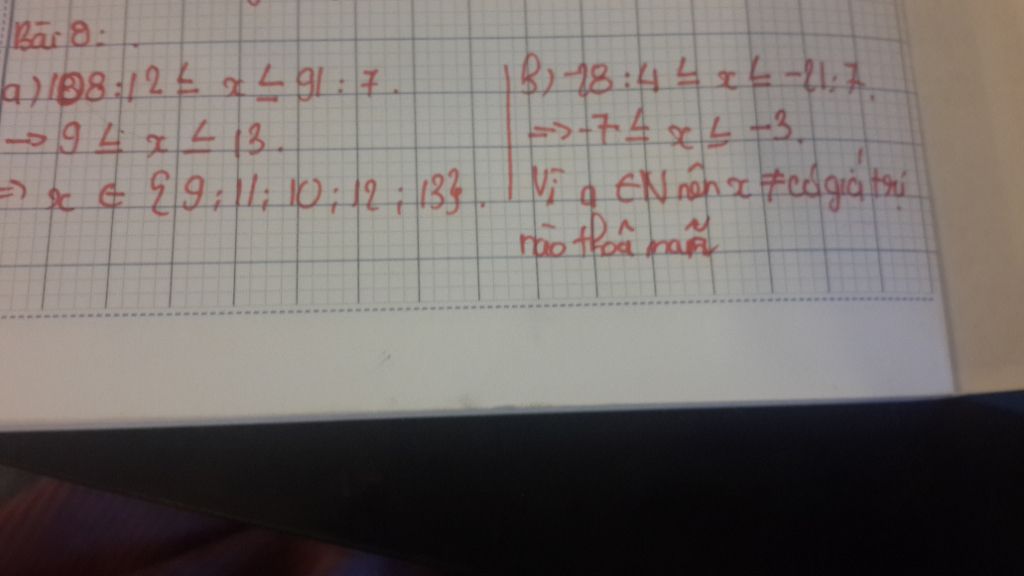 Bài 8:
a) 108 : 12 ≤ x ≤ 91 : 7.
→ 9 ≤ x ≤ 13.
=> x ∈ {9; 11; 10; 12; 13}.
b) -28 : 4 ≤ x ≤ -21 : 7.
=> -7 ≤ x ≤ -3.
Vì a ∈ N nên x ≠ có giá trị
nào thoã mãn